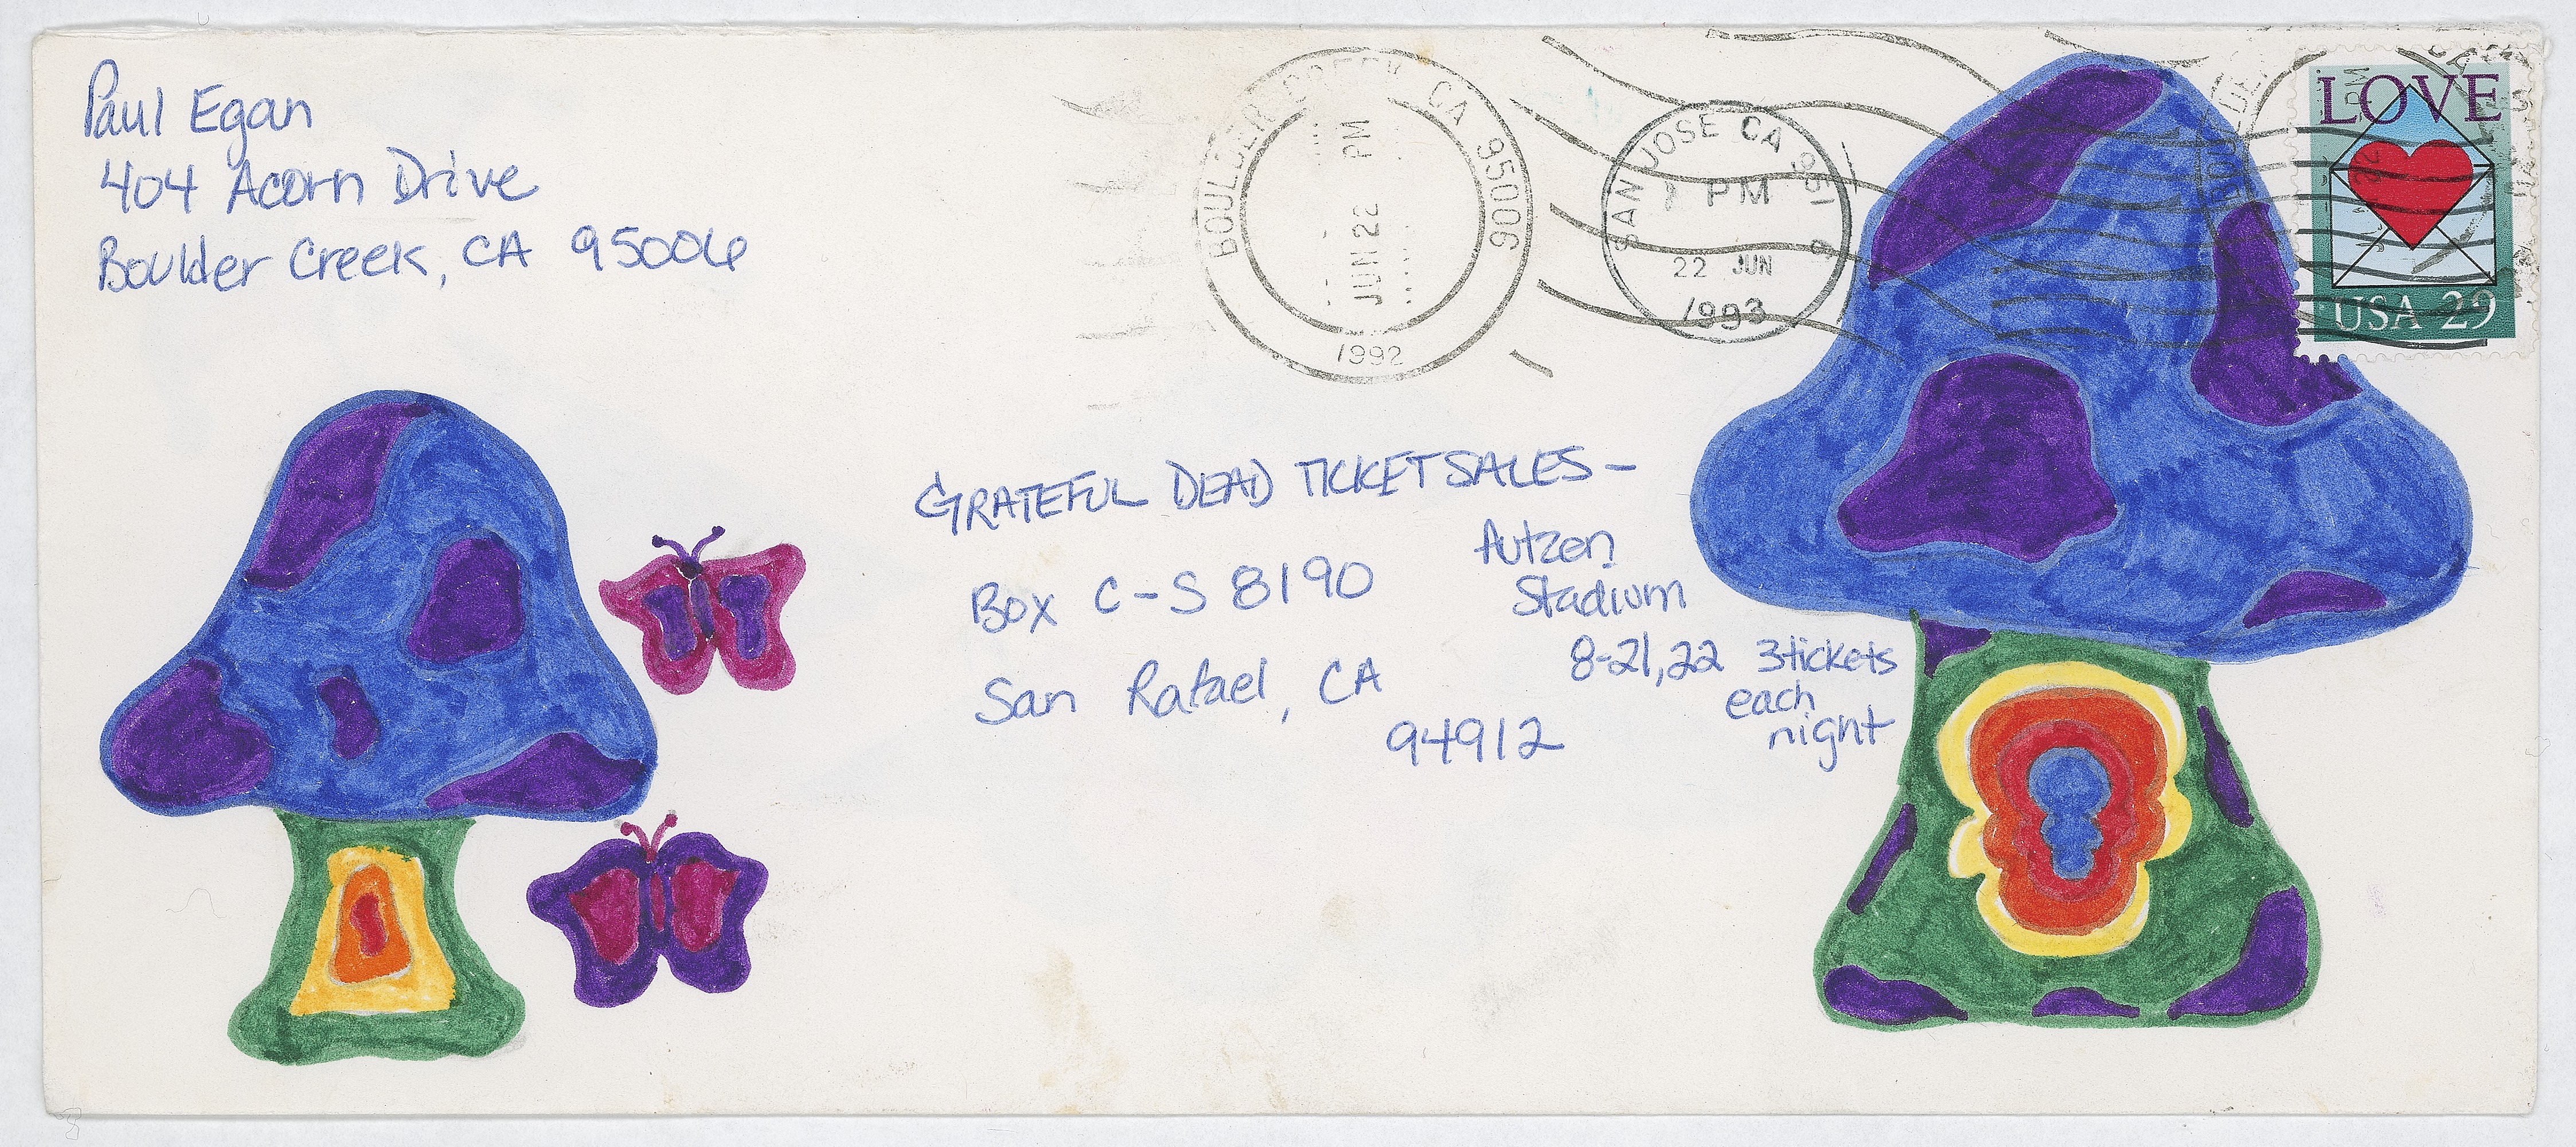 Paul Egan
404 Acorn Drive
Boulder Creek, CA 95006
BOULDER CREEK CA 95006
PM
JUN 22
1992
SAN JOSE CA 951
PM
22 JUN
1993
LOVE
USA 29
GRATEFUL DEAD TICKET SALES –
Box C-S 8190
San Rafael, CA
94912
Autzen
Stadium
8-21,22 3 tickets
each
night